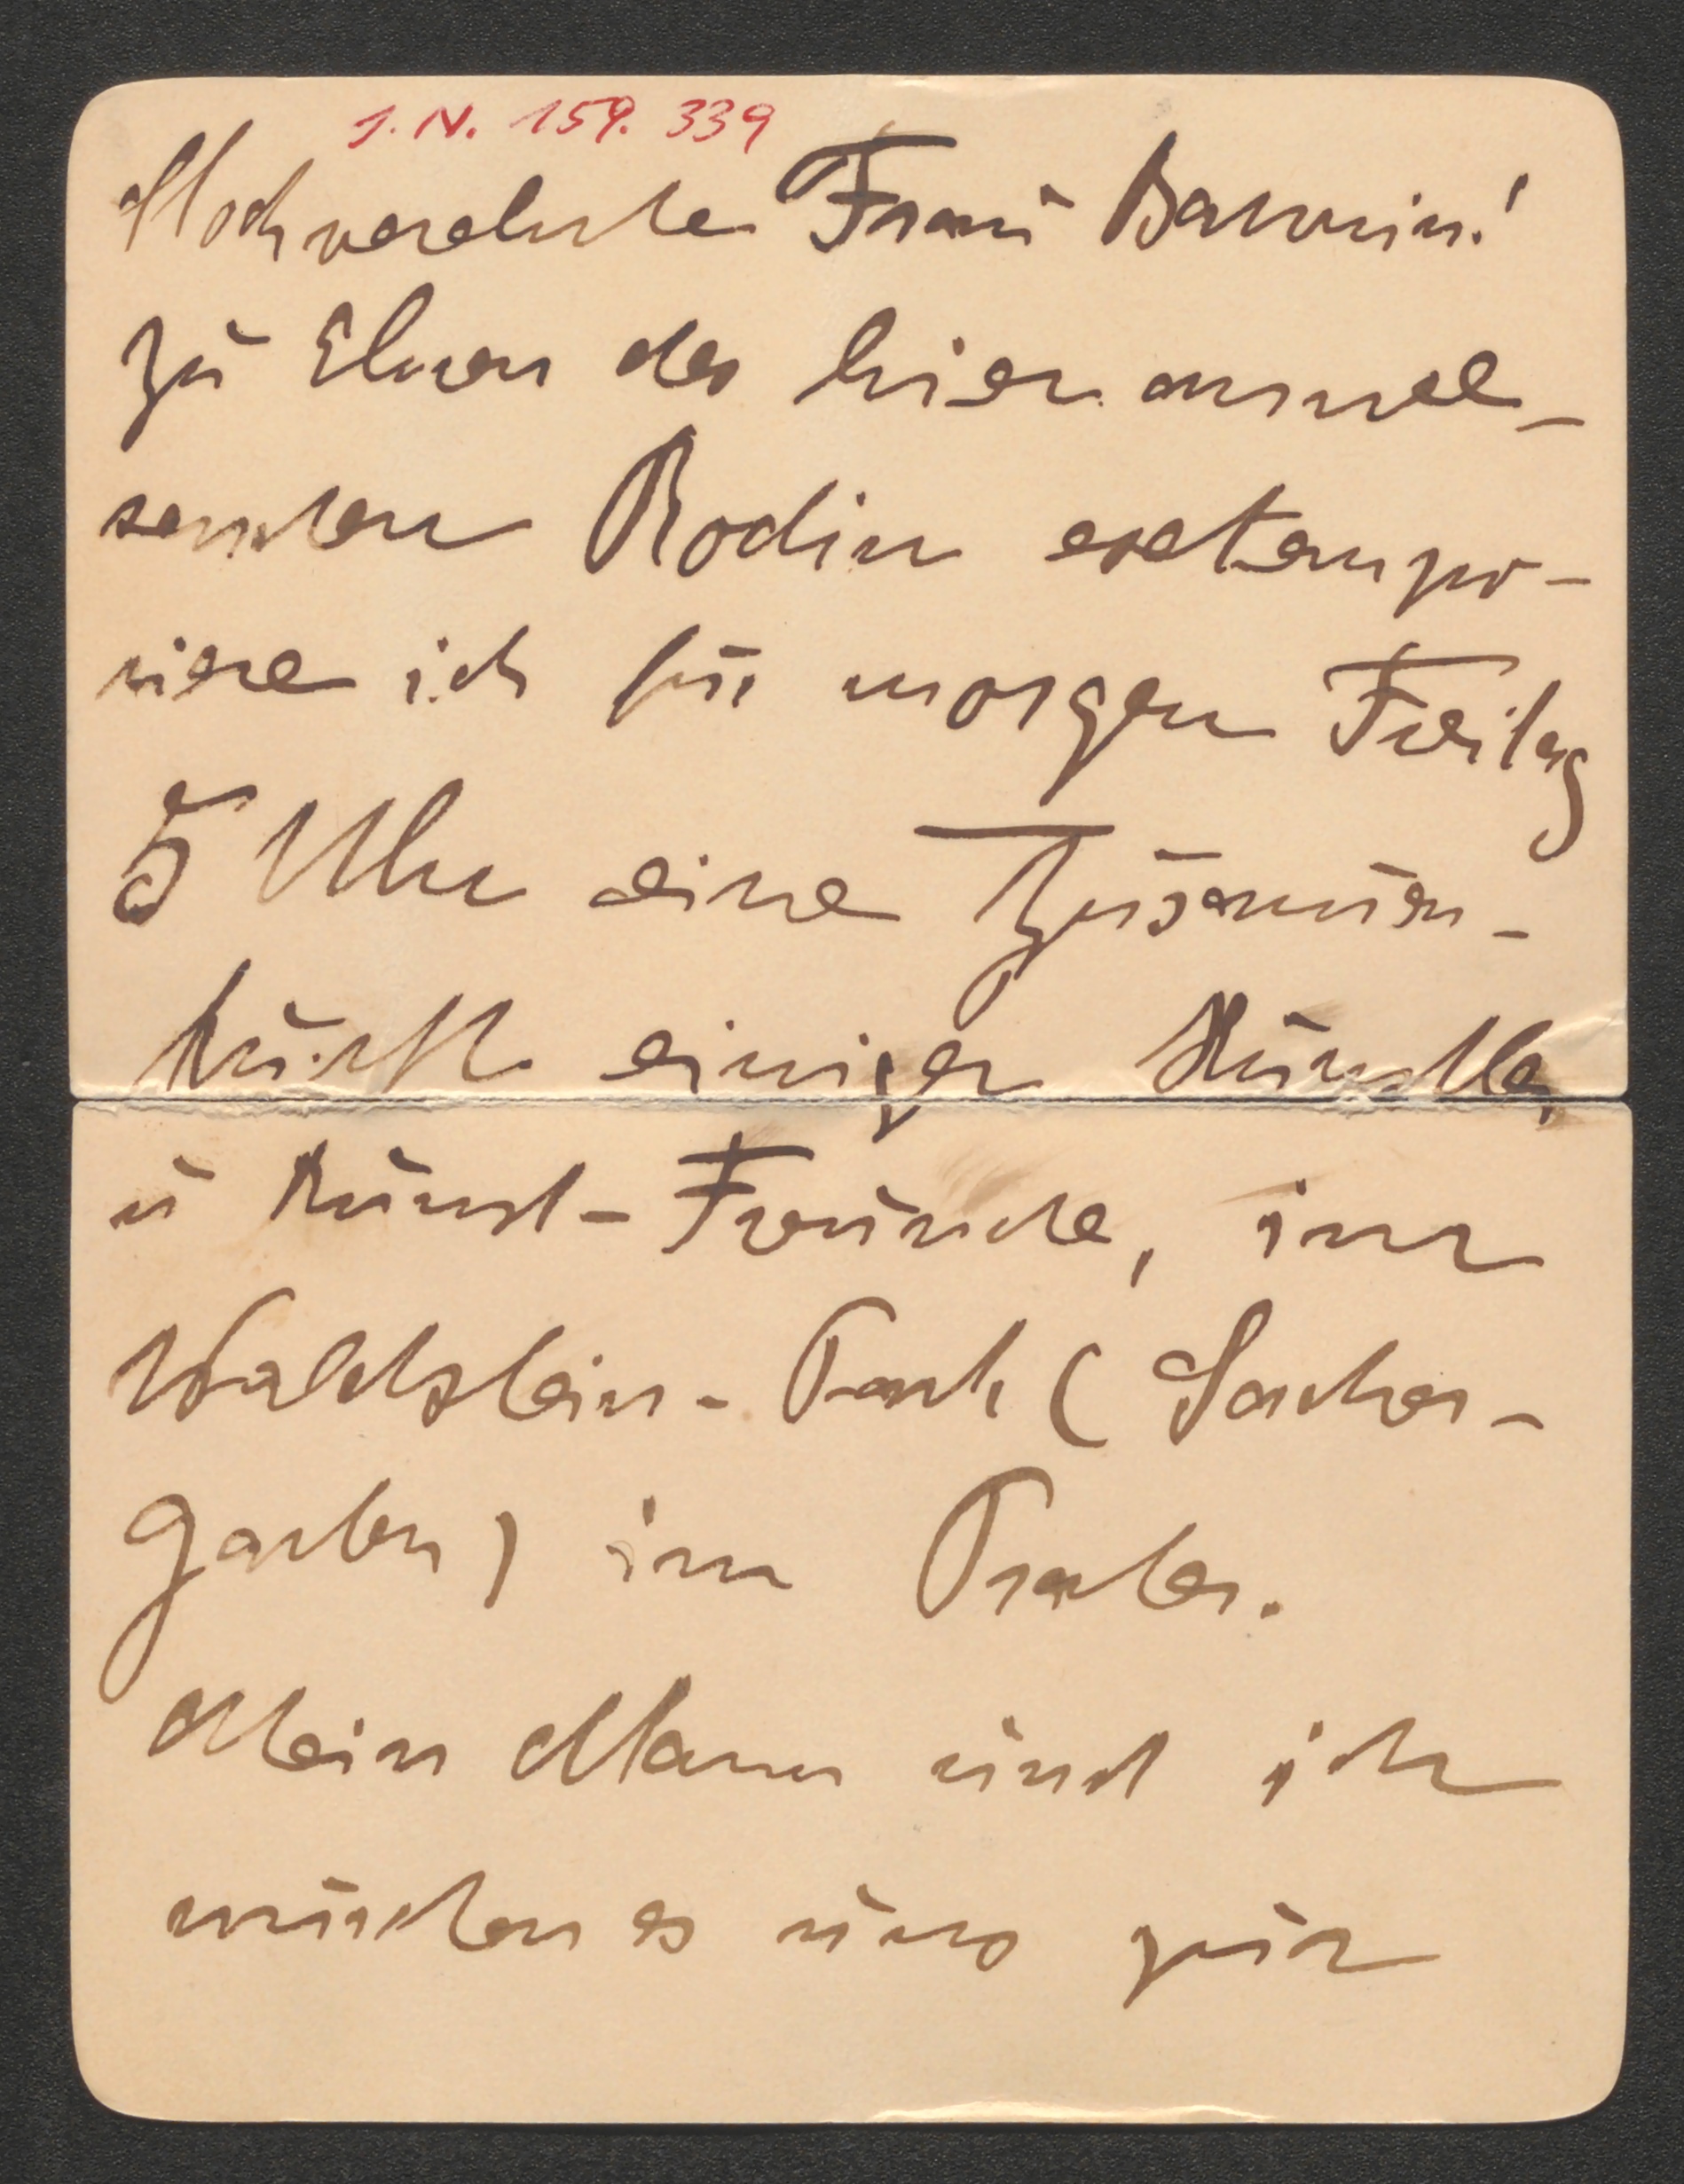 J. N. 159. 339
Hochverehrte Frau Baronin!
Zu Ehren des hier anwe-
senden Rodin extempo-
riere ich für morgen Freitag
5 Uhr eine Zusamen-
kunft einiger Künstler
u Kunst-Freunde, im
Waldstein-Park (Sacher-
garten) im Prater.
Mein Mann und ich
würden es uns zur